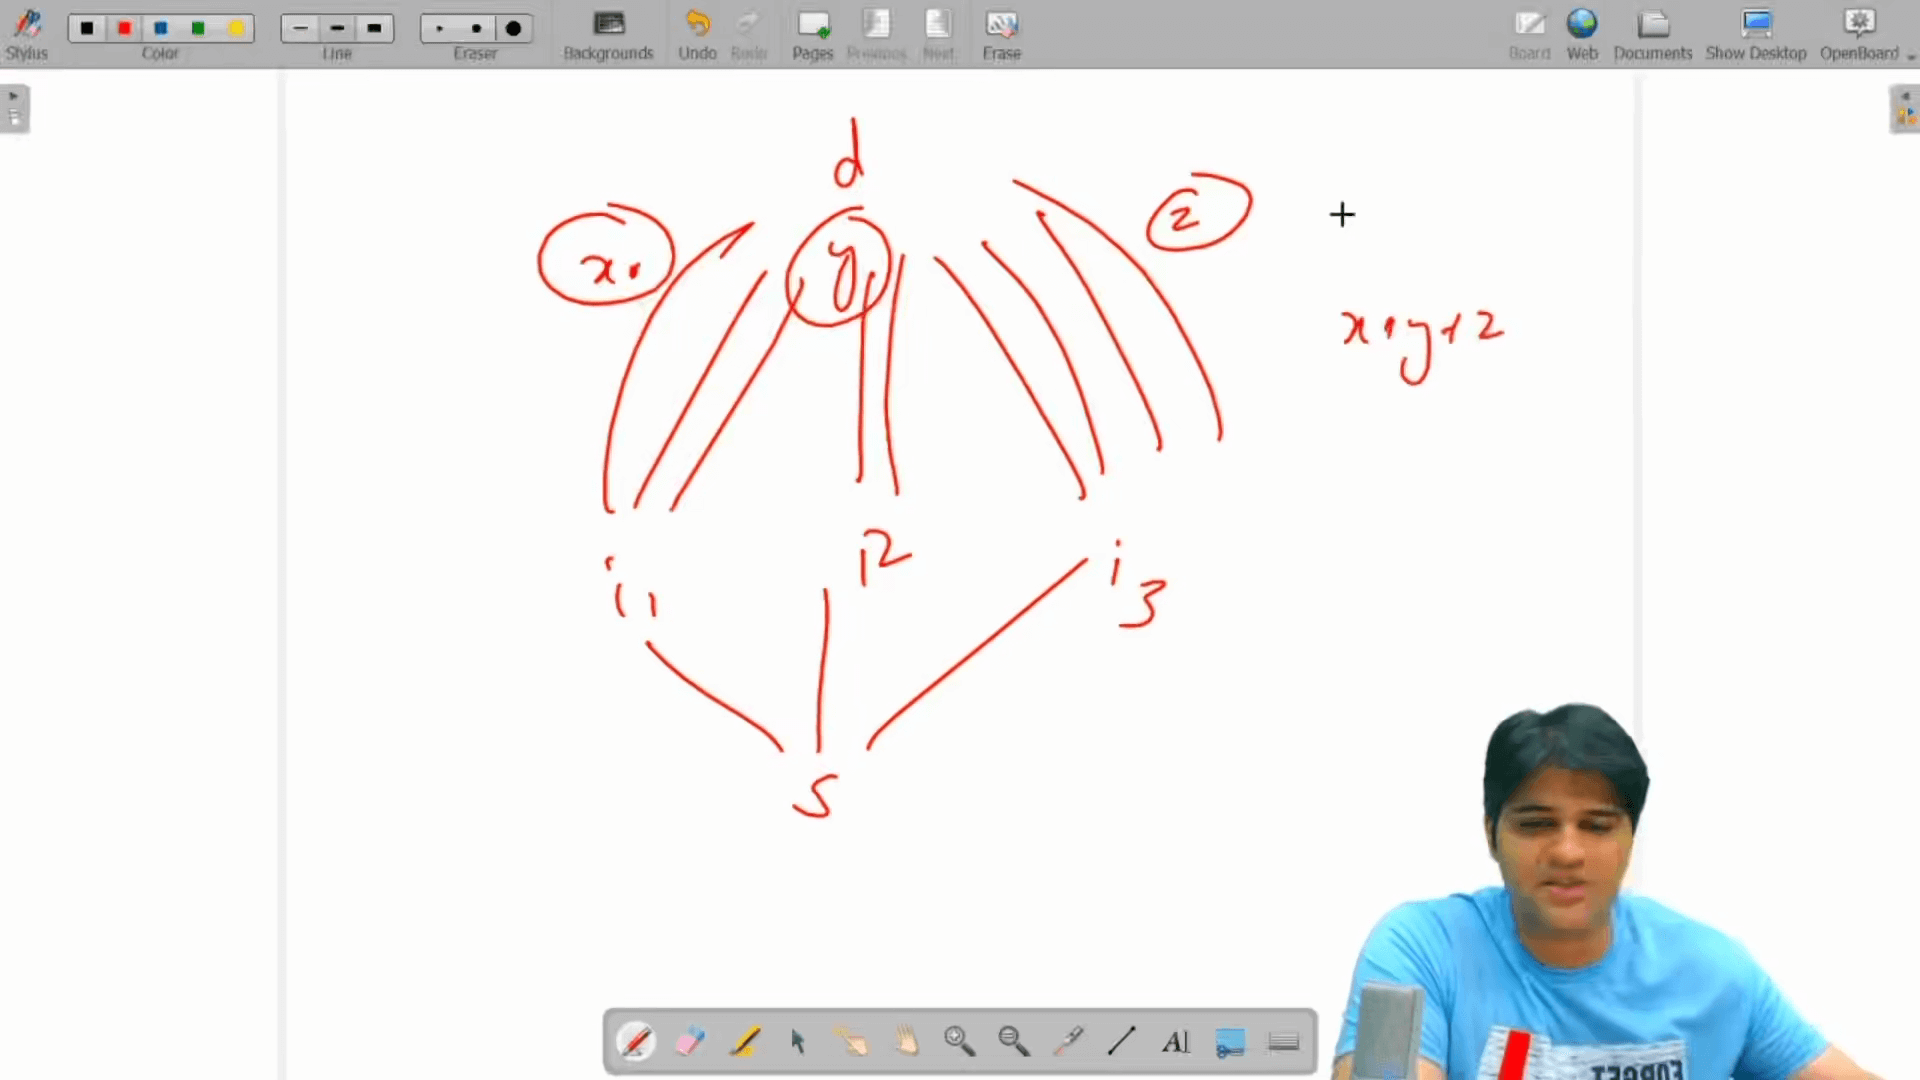 Stylus
Color
Line
Eraser
Backgrounds
Undo
Redo
Pages
Previous
Next
Erase
Board
Web
Documents
Show Desktop
OpenBoard
d
x
y
z
x+y+z
i1
i2
i3
s
AI
FORGET